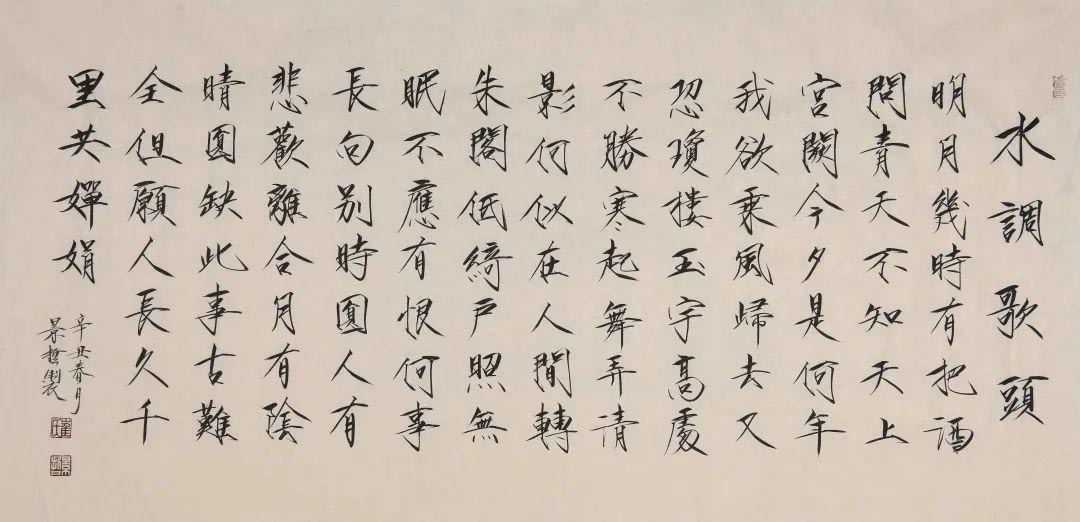 水調歌頭
明月幾時有把酒
問青天不知天上
宮闕今夕是何年
我欲乘風歸去又
恐瓊樓玉宇高處
不勝寒起舞弄清
影何似在人間轉
朱閣低綺戶照無
眠不應有恨何事
長向別時圓人有
悲歡離合月有陰
晴圓缺此事古難
全但願人長久千
里共嬋娟
辛丑春月
景哲製